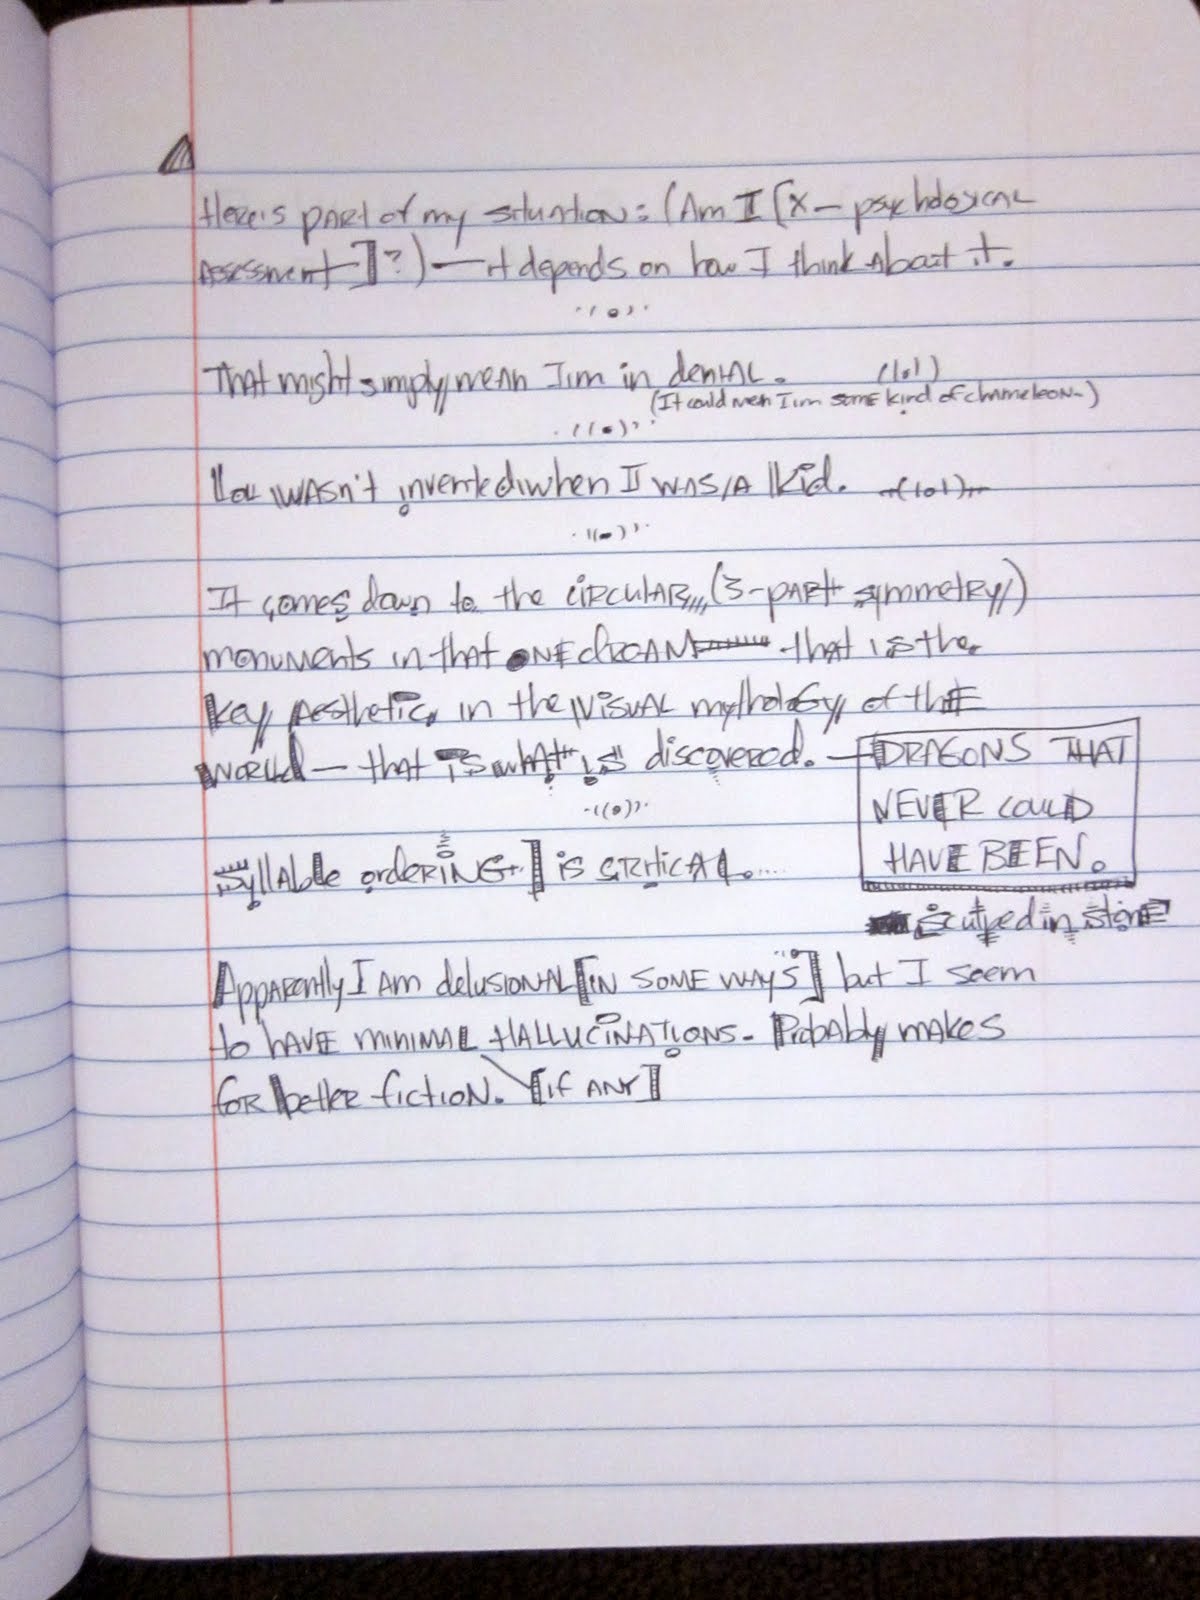 Here's part of my situation: (Am I [X - psychological
assessment]?) — it depends on how I think about it.
That might simply mean I'm in denial. (lol)
(It could mean I'm some kind of chameleon.)
Lol wasn't invented when I was a kid. (lol)
It comes down to the circular, (3-part symmetry)
monuments in that one dream that is the
key aesthetic, in the visual mythology of the
world — that is what is discovered. — DRAGONS THAT
NEVER COULD
HAVE BEEN.
Syllable ordering] is critical....
sculped in stone
Apparently I am delusional [in some ways] but I seem
to have minimal hallucinations. Probably makes
for better fiction. [if any]